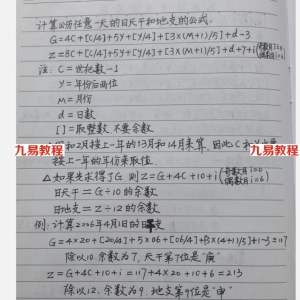 计算公历任意一天的日天干和地支的公式:
G=4C+[C/4]+5Y+[Y/4]+[3×(M+1)/5]+d-3
Z=8C+[C/4]+5Y+[Y/4]+[3×(M+1)/5]+d+7+i(奇数月i=0 偶数月i=6)
注: C=世纪数-1
Y=年份后两位
M=月份
d=日数
[]=取整数 不要余数
和2月按上一年的13月和14月来算,因此C和Y也要
九易教程
九易教程
按上一年的年份来取值.
△如果先求得了G 则Z=G+4C+10+i(奇数月i=0 偶数月i=6)
日天干=G÷10的余数
日地支=Z÷12的余数
例:计算2006年4月1日的干支
G=4×20+[20/4]+5×06+[06/4]+[3×(4+1)/5]+1-3=117
除以10.余数为7.天干第7位是"庚"
Z=G+4C+10+i=117+4×20+10+6=213
除以12.余数为9.地支第9位是"申"